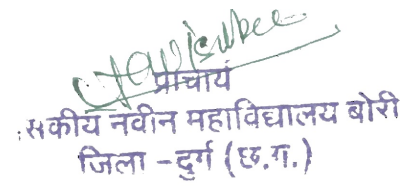 प्राचार्य
सकीय नवीन महाविद्यालय बोरी
जिला - दुर्ग (छ.ग.)